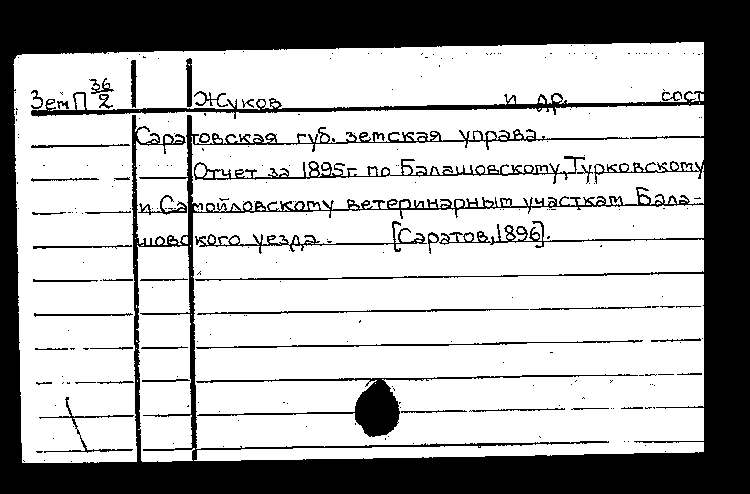 Зем П 36/2 Жуков и др. сост
Саратовская губ. земская управа.
Отчет за 1895г. по Балашовскому, Турковскому
и Самойловскому ветеринарным участкам Бала-
шовского уезда. [Саратов, 1896].